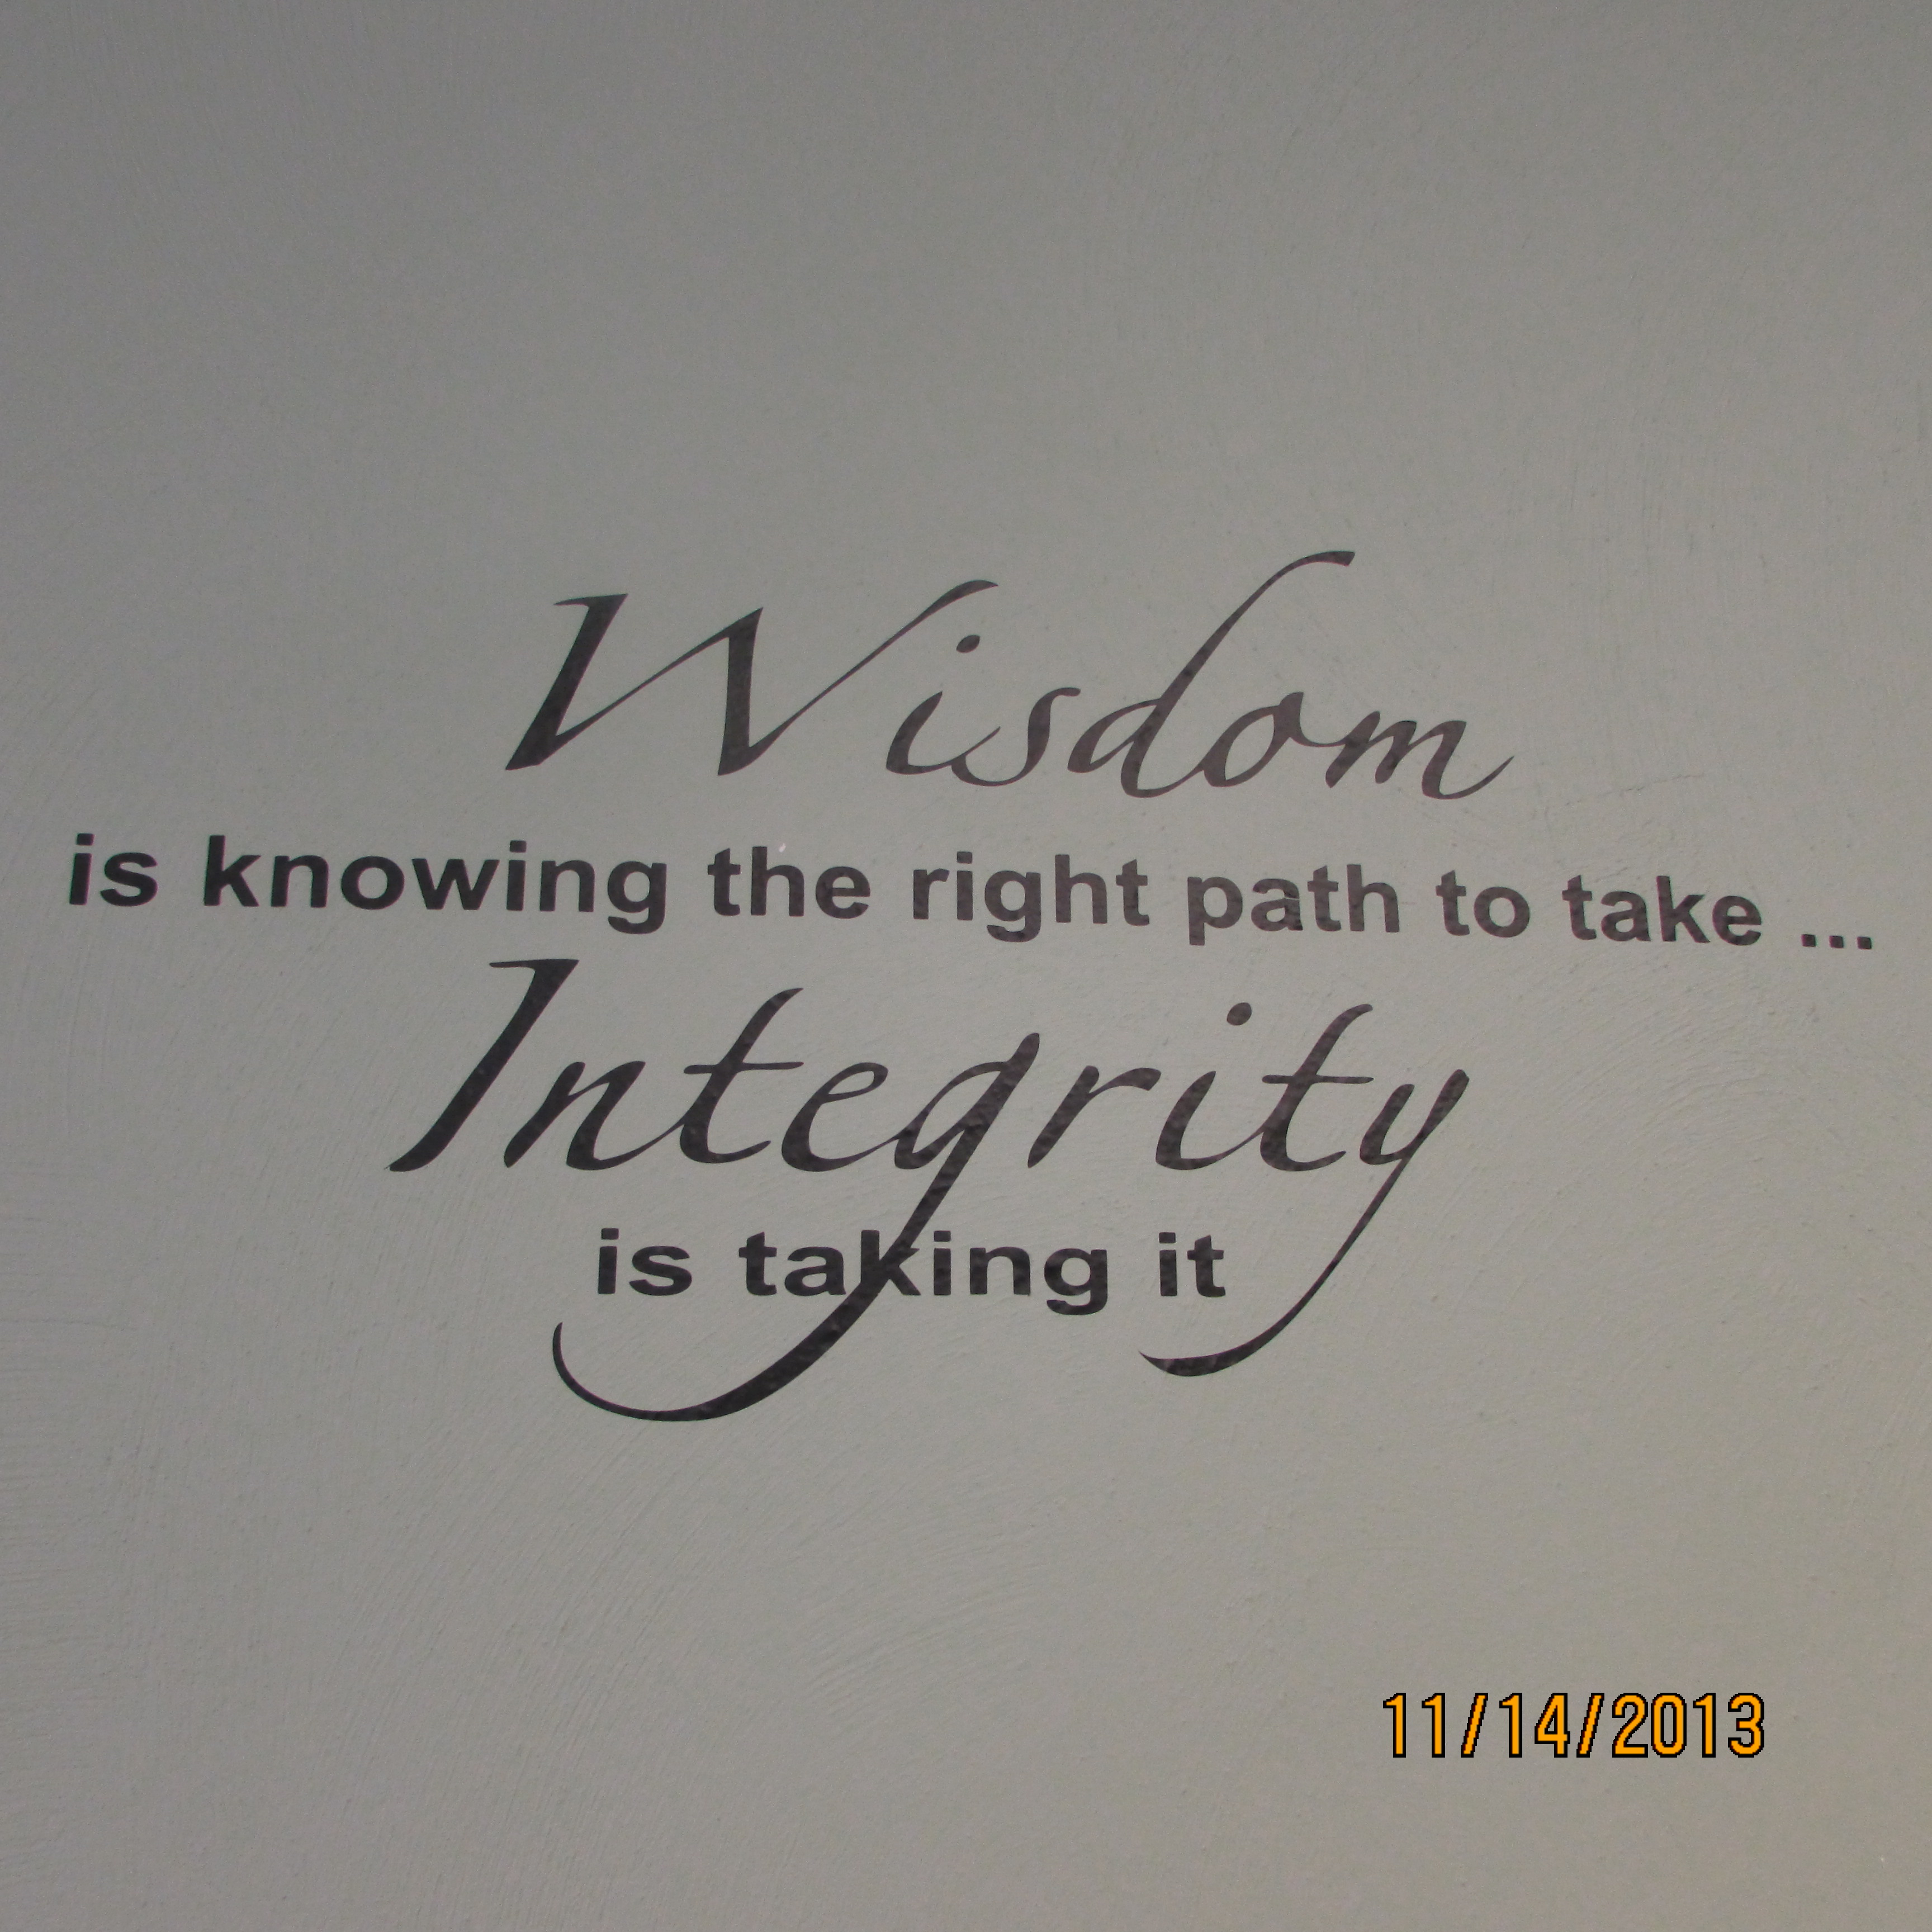 Wisdom
is knowing the right path to take ...
Integrity
is taking it
11/14/2013